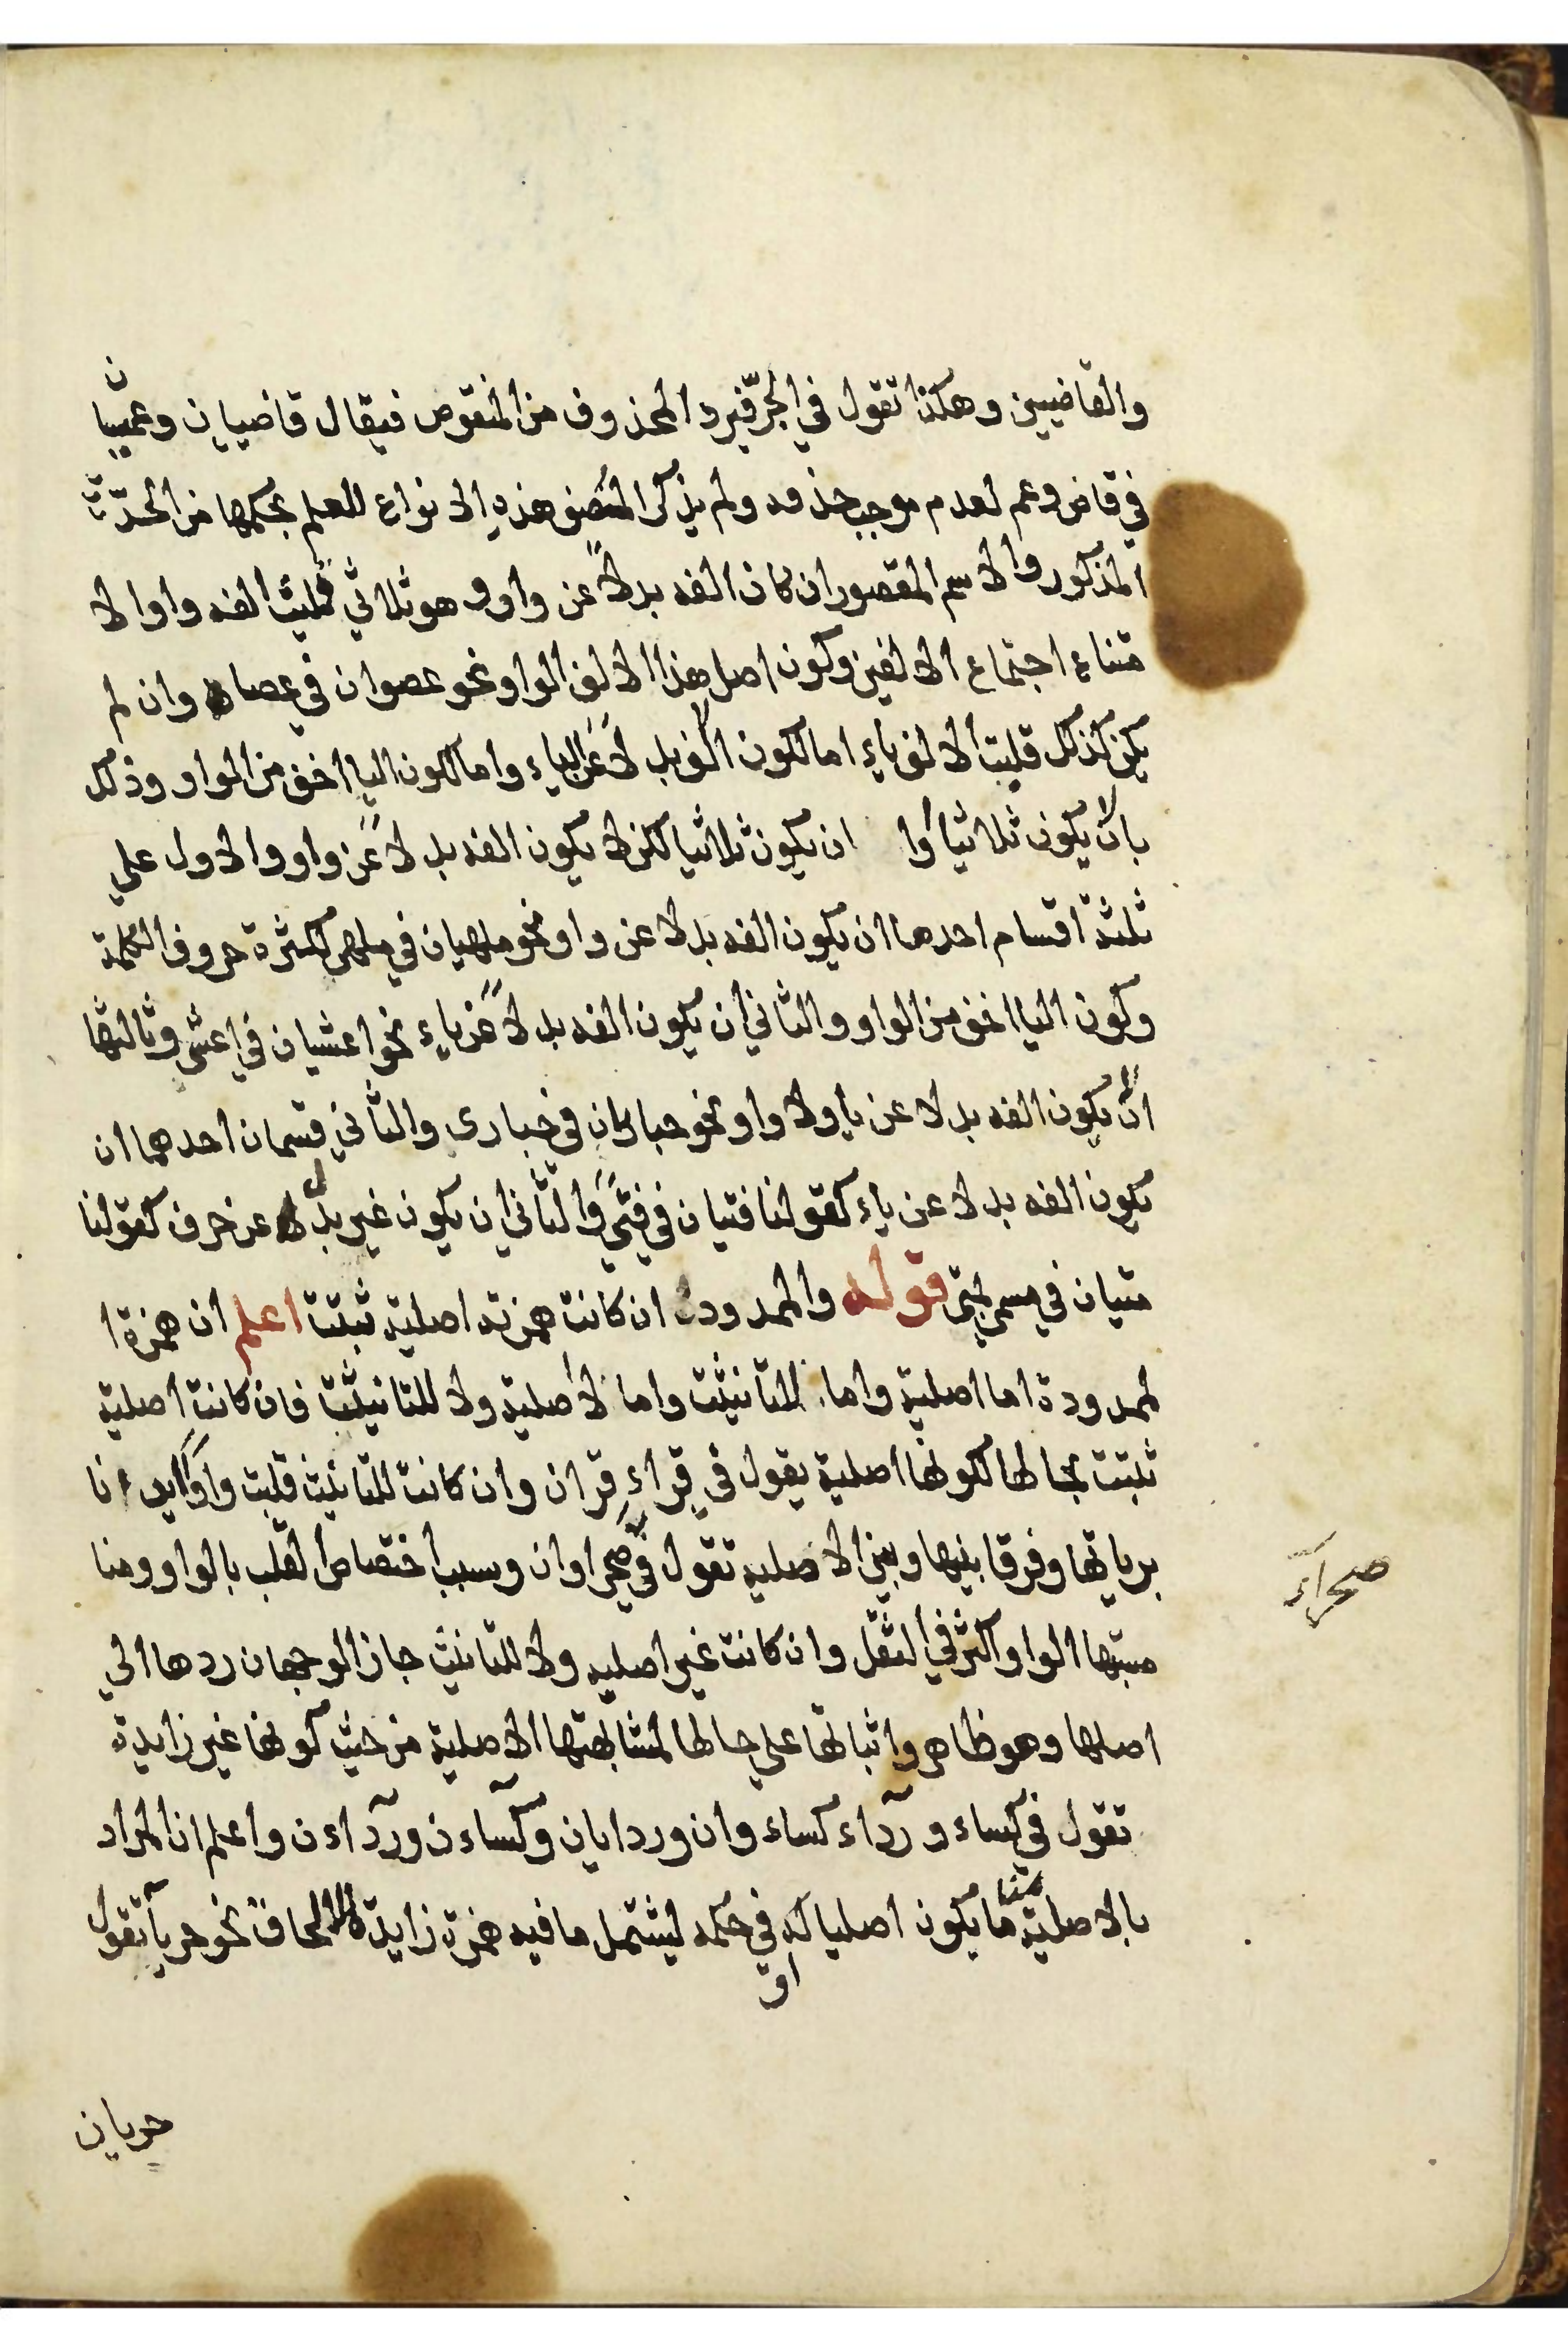 والقاضيين وهكذا تقول في الجرّ فيرد المحذوف من المنقوص فيقال قاضيان وعميان
في قاض وعم لعدم موجب حذفه ولم يذكر المصنف هذه الانواع للعلم بحكمها من الحدّ
المذكور والاسم المقصور ان كان الفه بدلاً عن واو وهو ثلاثي قلبت الفه واوا لا
متناع اجتماع الالفين وكون اصل هذا الالف الواو نحو عصوان في عصا وان لم
يكن كذلك قلبت الالف ياء اما لكون الالف بدلاً عن الياء واما لكون اليا اخف من الواو وذلك
بان لا يكون ثلاثيا او ان يكون ثلاثيا لكن لا يكون الفه بدلاً عن واو والاول علي
ثلثة اقسام احدها ان يكون الفه بدلا عن واو نحو ملهيان في ملهى لكثرة حروف الكلمة
وكون اليا اخف من الواو والثاني ان يكون الفه بدلاً عن ياء نحو اعشيان في اعشى وثالثها
ان يكون الفه بدلا عن يا ولا واو نحو حباريان في حبارى والثاني قسمان احدهما ان
يكون الفه بدلا عن ياء كقولنا فتيان في فتى والثاني ان يكون غير بدل عن حرف كقولنا
متيان في مسمى بمتى قوله والممدود ان كانت همزته اصلية ثبتت اعلم ان همزة ا
لممدودة اما اصلية واما للتانيث واما لا اصلية ولا للتانيث فان كانت اصلية
ثبتت بحالها لكونها اصلية يقول في قراء قران وان كانت للتانيث قلبت واوا ايذانا
بزيادتها وفرقا بينها وبين الاصليه تقول في صحراوان وسبب اختصاص القلب بالواو ومنا
صحراء
سبتها الواو اكثر في الثقل وان كانت غير اصليه ولا للتانيث جاز الوجهان ردها الي
اصلها وهو ظاهر واثباتها علي حالها لمشابهتها الاصلية من حيث كونها غير زايدة
تقول في كساء ورداء كساء وان وردايان وكساءن ورداءن واعلم ان المراد
بالاصلية هنا ما يكون اصليا او في حكمه ليشتمل ما فيه همزة زايدة للالحاق نحو حربآ تقول
حربان